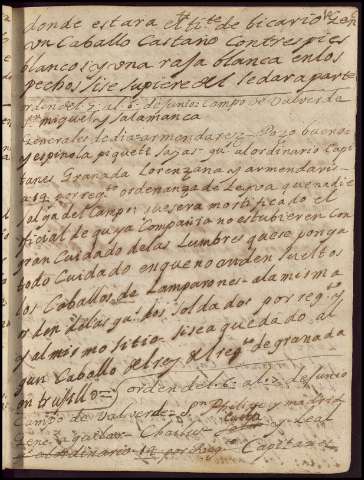 donde estara el tite de bicario
Un Caballo Castaño Con tres pies
blancos y una raja blanca en los
pechos si se supiere de el se dara parte
orden del 5 al 6 de junio Campo de Valverde
Sn miguel y Salamanca
Generales de dia armendarez Pozo bueno
y espinola piquete sajas gu al ordinario Capi
tanes Granada Lorenzana y armendaris
a 12 por regto ordenanza de que nadie
salga del Campo su sera mortificado el
oficial de cuya Compañia no estubieren Con
gran Cuidado de las Lumbres que se ponga
todo Cuidado en que no anden sueltos
los Caballos de Lamparones a la misma
orden de las guas dos soldados por regto
y al mismo sitio si sea quedado al
gun Caballo del rey del regto de granada
en trusillo
orden del 6 al 7 de junio
Campo de Valverde Sn Phelipe y madrid
Genera Leal
al ordinario 12 por Regto Capitanes